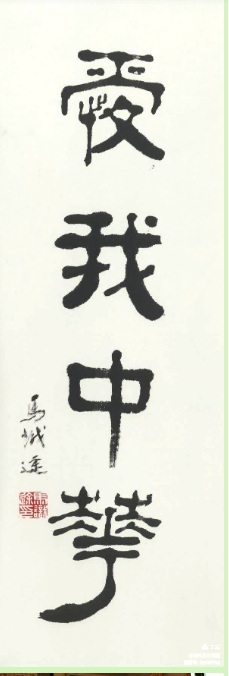 愛我中華
馬城達